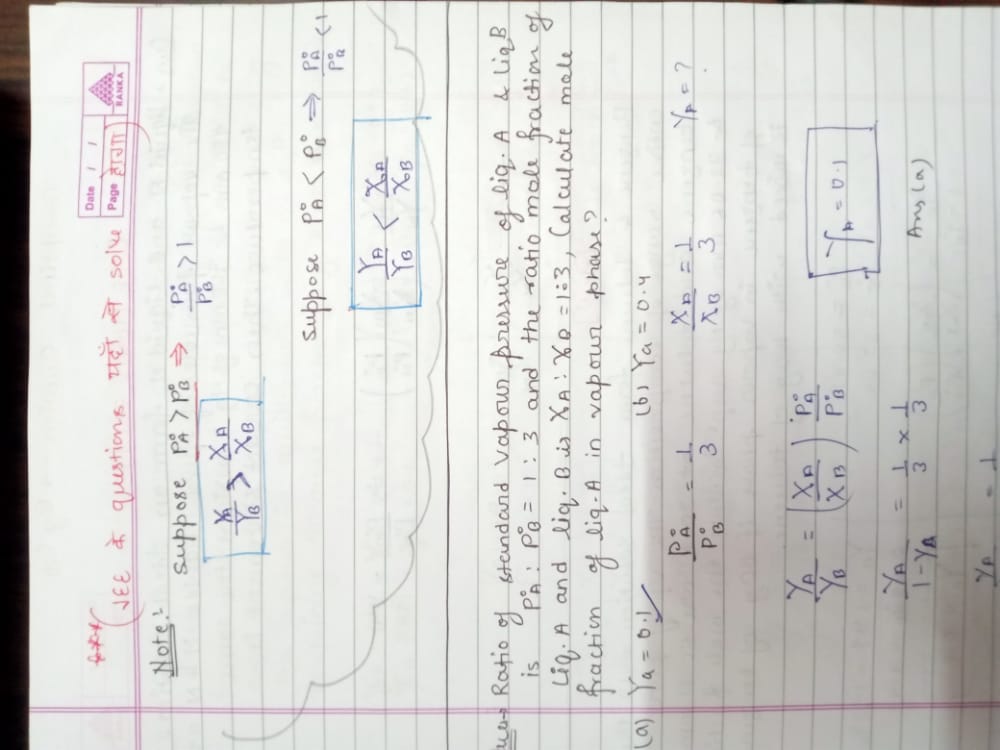 Date / /
Page
RANKA
*** (JEE के questions यहाँ से solve होगा)
Note:-
suppose P°A > P°B ⇒ P°A/P°B > 1
YA/YB > XA/XB
suppose P°A < P°B ⇒ P°A/P°B < 1
YA/YB < XA/XB
Ratio of standard vapour pressure of liq. A & liq B
is P°A : P°B = 1 : 3 and the ratio mole fraction of
Liq. A and liq. B is XA : XB = 1:3, Calculate mole
fraction of liq. A in vapour phase?
(a) Ya = 0.1 ✓ (b) Ya = 0.4
P°A/P°B = 1/3 XA/XB = 1/3 YA = ?
YA/YB = (XA/XB) P°A/P°B
YA/1-YA = 1/3 × 1/3 YA = 0.1
YA = 1 Ans(a)